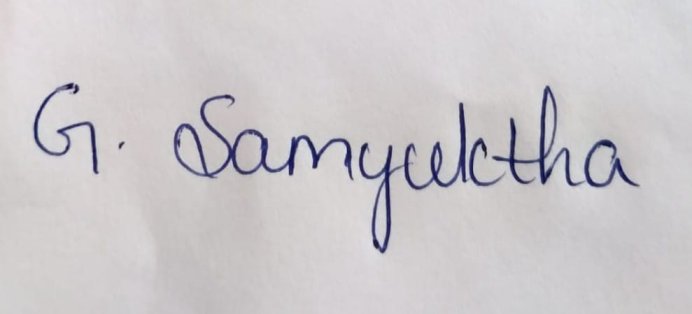 G. Samyuktha